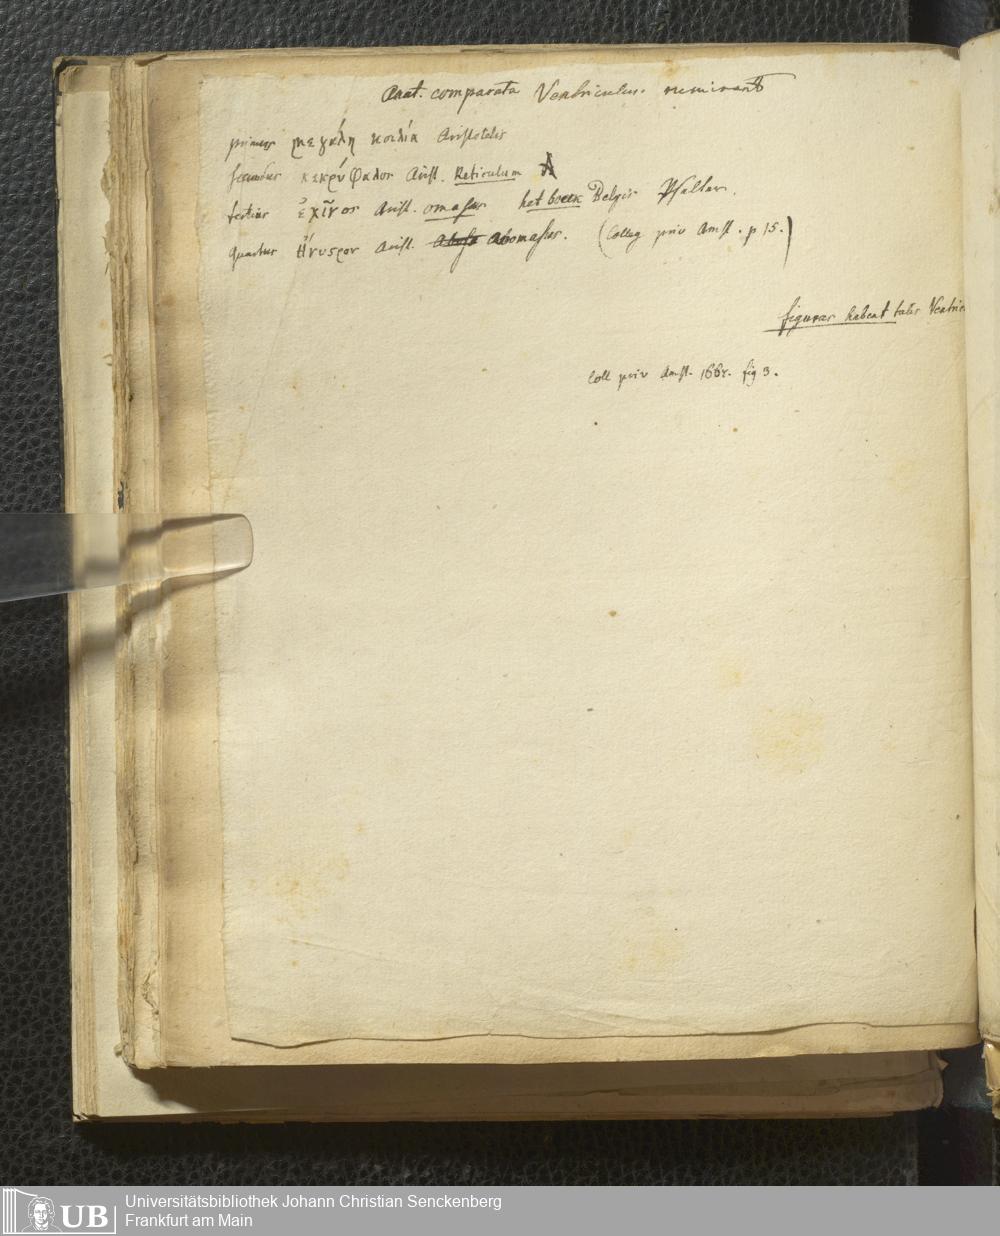 Anat. comparata Ventriculus. ruminant
primus μεγάλη κοιλία Aristotelis
secundus κεκρύφαλος Arist. Reticulum
tertius ἐχῖνος Arist. omasus het boeck Belgis Psalter.
quartus ἤνυστρον Arist. Abomasus. (Colleg priv Amst. p 15.)
figuras habent tales Ventric
Coll priv Amst. fig 3.
Universitätsbibliothek Johann Christian Senckenberg
Frankfurt am Main
UB